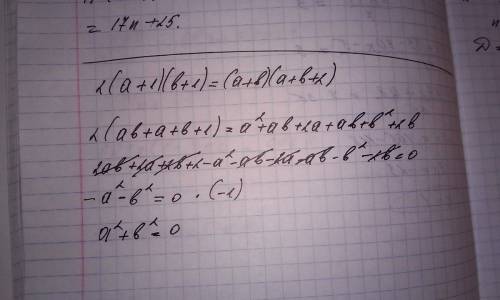 = 17n+25.
2(a+1)(b+1)=(a+b)(a+b+2)
2(ab+a+b+1)=a²+ab+2a+ab+b²+2b
2ab+2a+2b+2-a²-ab-2a-ab-b²-2b=0
-a²-b²=0 · (-1)
a²+b²=0